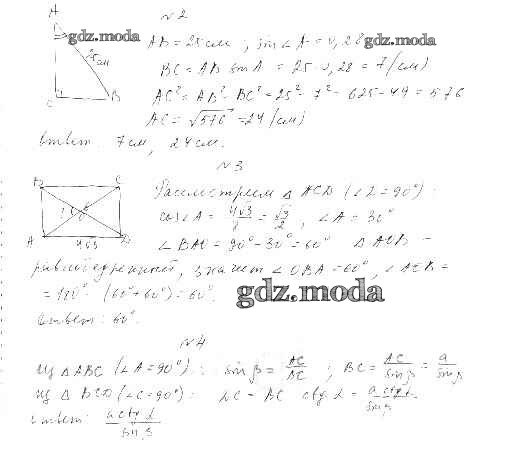 №2
A
gdz.moda
25см
C
B
AB = 25см ; sin∠A = 0,28
gdz.moda
BC = AB sin A = 25 · 0,28 = 7 (см)
AC² = AB² - BC² = 25² - 7² = 625 - 49 = 576
AC = √576 = 24 (см)
Ответ: 7см, 24см.
№3
B
C
A
D
4√3
Рассмотрим △ ACD (∠D = 90°):
cos∠A = 4√3/8 = √3/2 , ∠A = 30°
∠BAO = 90° - 30° = 60° △ AOB -
равнобедренный, значит ∠OBA = 60°, ∠AOB =
= 180° - (60° + 60°) = 60°.
gdz.moda
Ответ: 60°.
№4
из △ ABC (∠A = 90°): sin β = AC/BC ; BC = AC/sin β = a/sin β
из △ BCD (∠C = 90°): DC = BC ctg α = a ctg α/sin β
Ответ: a ctg α/sin β